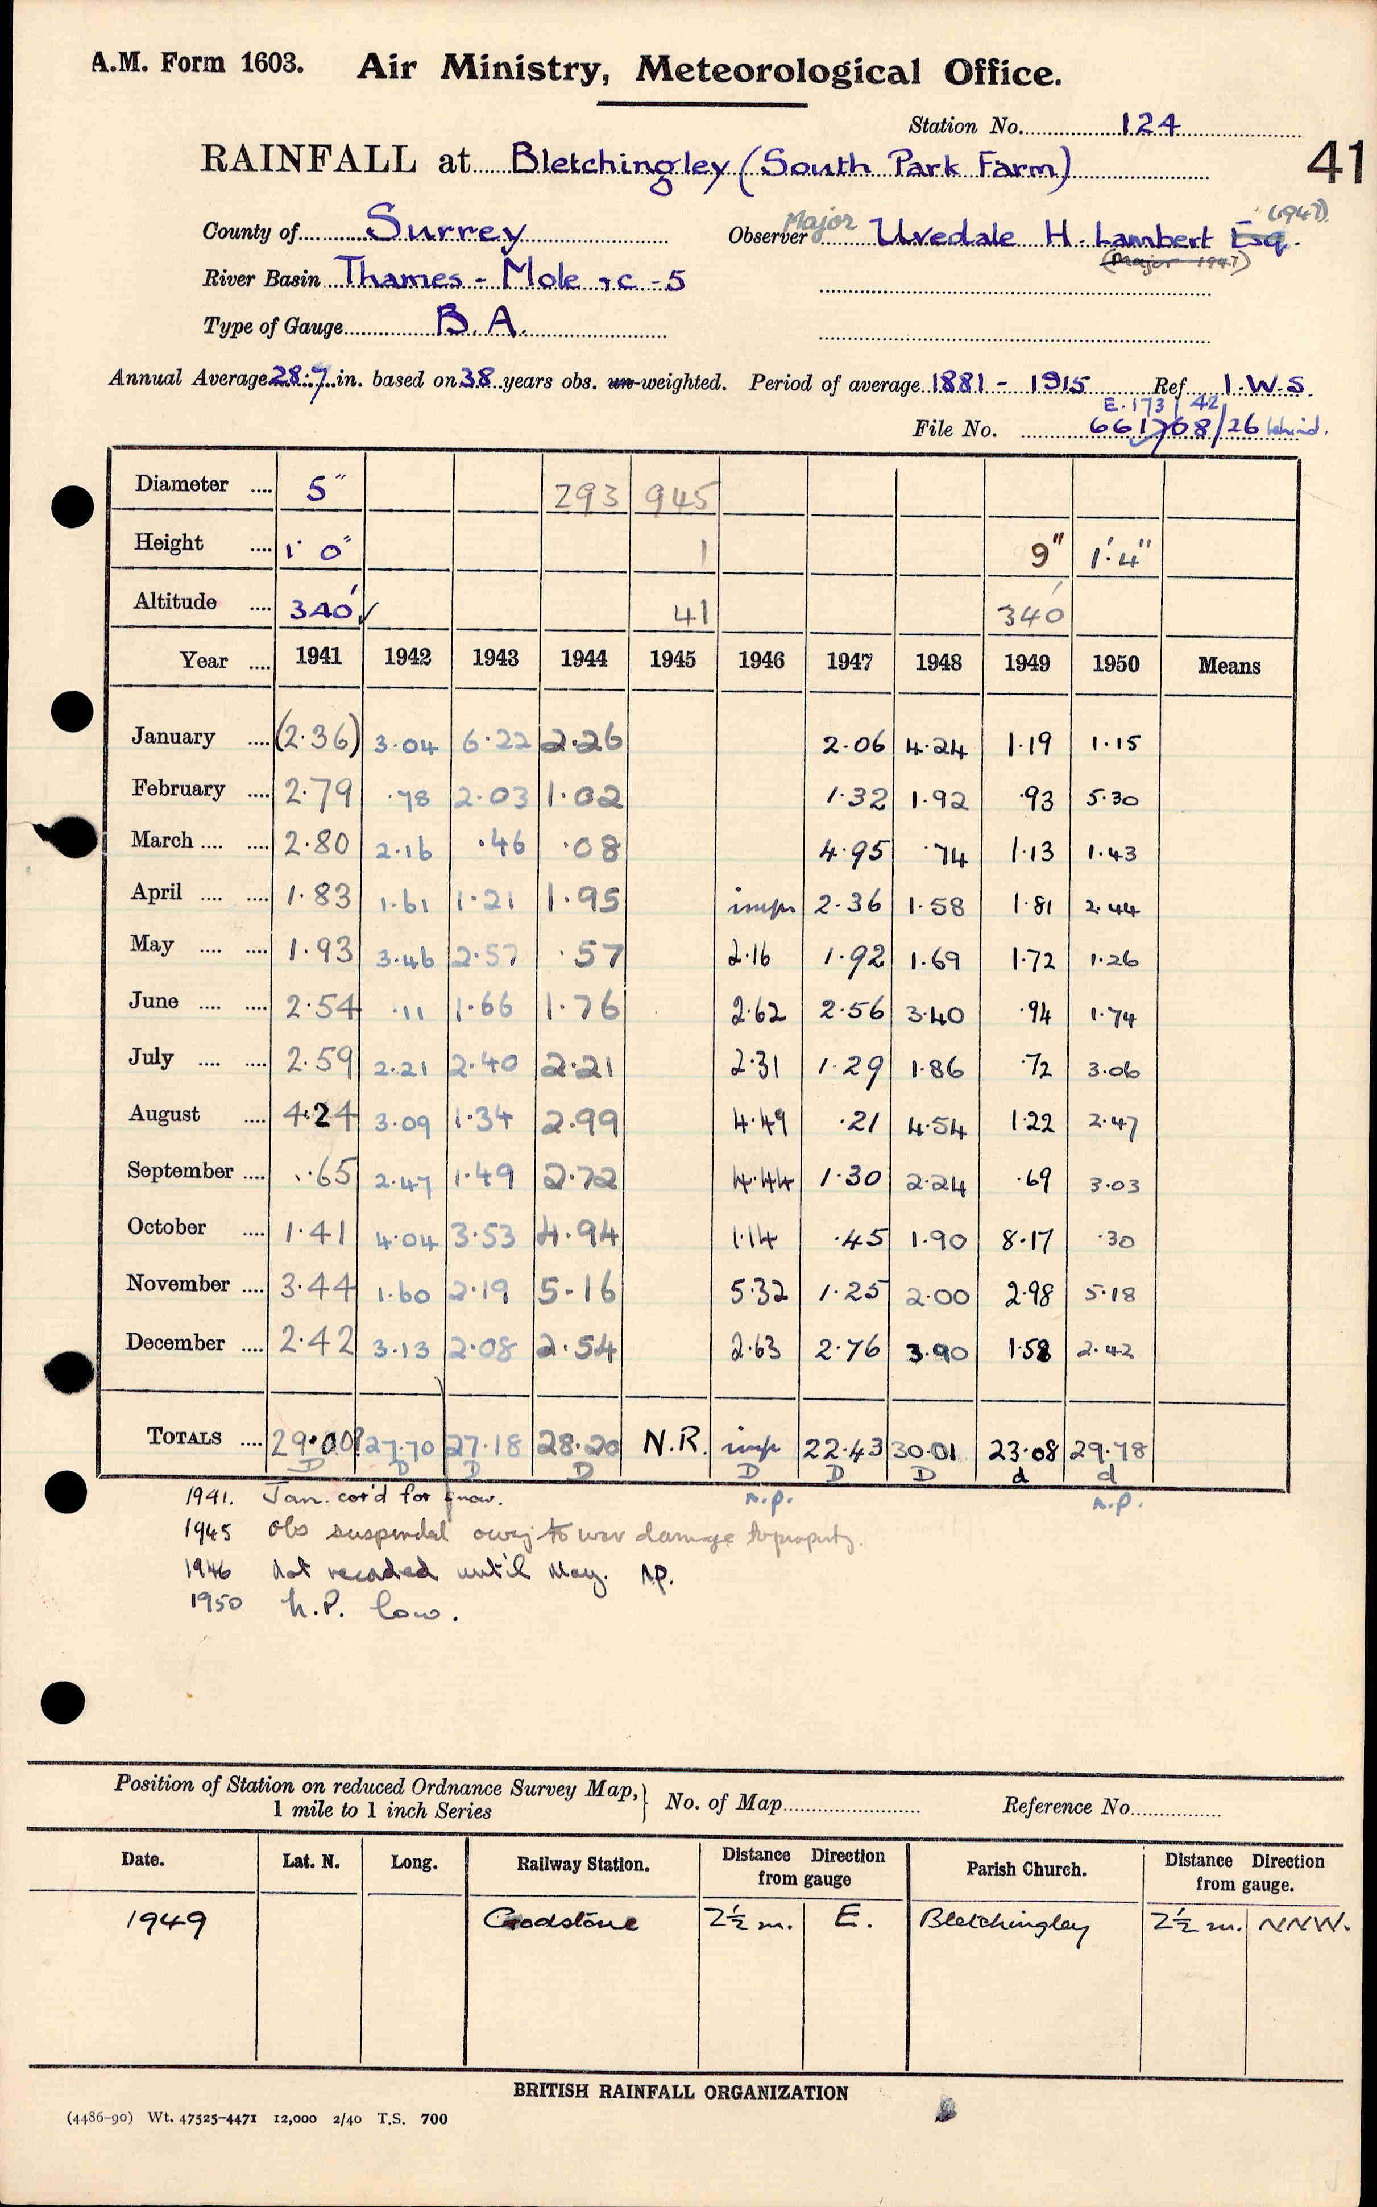 A.M. Form 1603. Air Ministry, Meteorological Office.
Station No. 124
41
RAINFALL at Bletchingley (South Park Farm)
County of Surrey Observer Major Uvedale H. Lambert Esq. (1947)
(Major 1947)
River Basin Thames - Mole &c - 5
Type of Gauge B.A.
Annual Average 28.7 in. based on 38 years obs. un-weighted. Period of average 1881 - 1915 Ref. I.W.S.
E.173/42
File No. 661768/26 behind.
Diameter .... 5" 293 945
Height .... 1' 0" 1 9" 1'.4"
Altitude .... 340' ✓ 41 340'
Year .... 1941 1942 1943 1944 1945 1946 1947 1948 1949 1950 Means
January .... (2.36) 3.04 6.22 2.26 2.06 4.24 1.19 1.15
February .... 2.79 .78 2.03 1.02 1.32 1.92 .93 5.30
March .... .... 2.80 2.16 .46 .08 4.95 .74 1.13 1.43
April .... .... 1.83 1.61 1.21 1.95 imp 2.36 1.58 1.81 2.44
May .... .... 1.93 3.46 2.57 .57 2.16 1.92 1.69 1.72 1.26
June .... .... 2.54 .11 1.66 1.76 2.62 2.56 3.40 .94 1.74
July .... .... 2.59 2.21 2.40 2.21 2.31 1.29 1.86 .72 3.06
August .... 4.24 3.09 1.34 2.99 4.49 .21 4.54 1.22 2.47
September .... .65 2.47 1.49 2.72 4.44 1.30 2.24 .69 3.03
October .... 1.41 4.04 3.53 4.94 1.14 .45 1.90 8.17 .30
November .... 3.44 1.60 2.19 5.16 5.32 1.25 2.00 2.98 5.18
December .... 2.42 3.13 2.08 2.54 2.63 2.76 3.90 1.58 2.42
TOTALS .... 29.00? 27.70 27.18 28.20 N.R. imp 22.43 30.01 23.08 29.78
D D D D D D D d d
n.p. n.p.
1941. Jan. cor'd for snow.
1945 Obs suspended owing to war damage to property.
1946 Not recorded until May. N.P.
1950 N.P. low.
Position of Station on reduced Ordnance Survey Map, 1 mile to 1 inch Series } No. of Map Reference No.
Date. Lat. N. Long. Railway Station. Distance Direction from gauge Parish Church. Distance Direction from gauge.
1949 Godstone 2½ m. E. Bletchingley 2½ m. NNW.
BRITISH RAINFALL ORGANIZATION
(4486-90) Wt. 47525-4471 12,000 2/40 T.S. 700